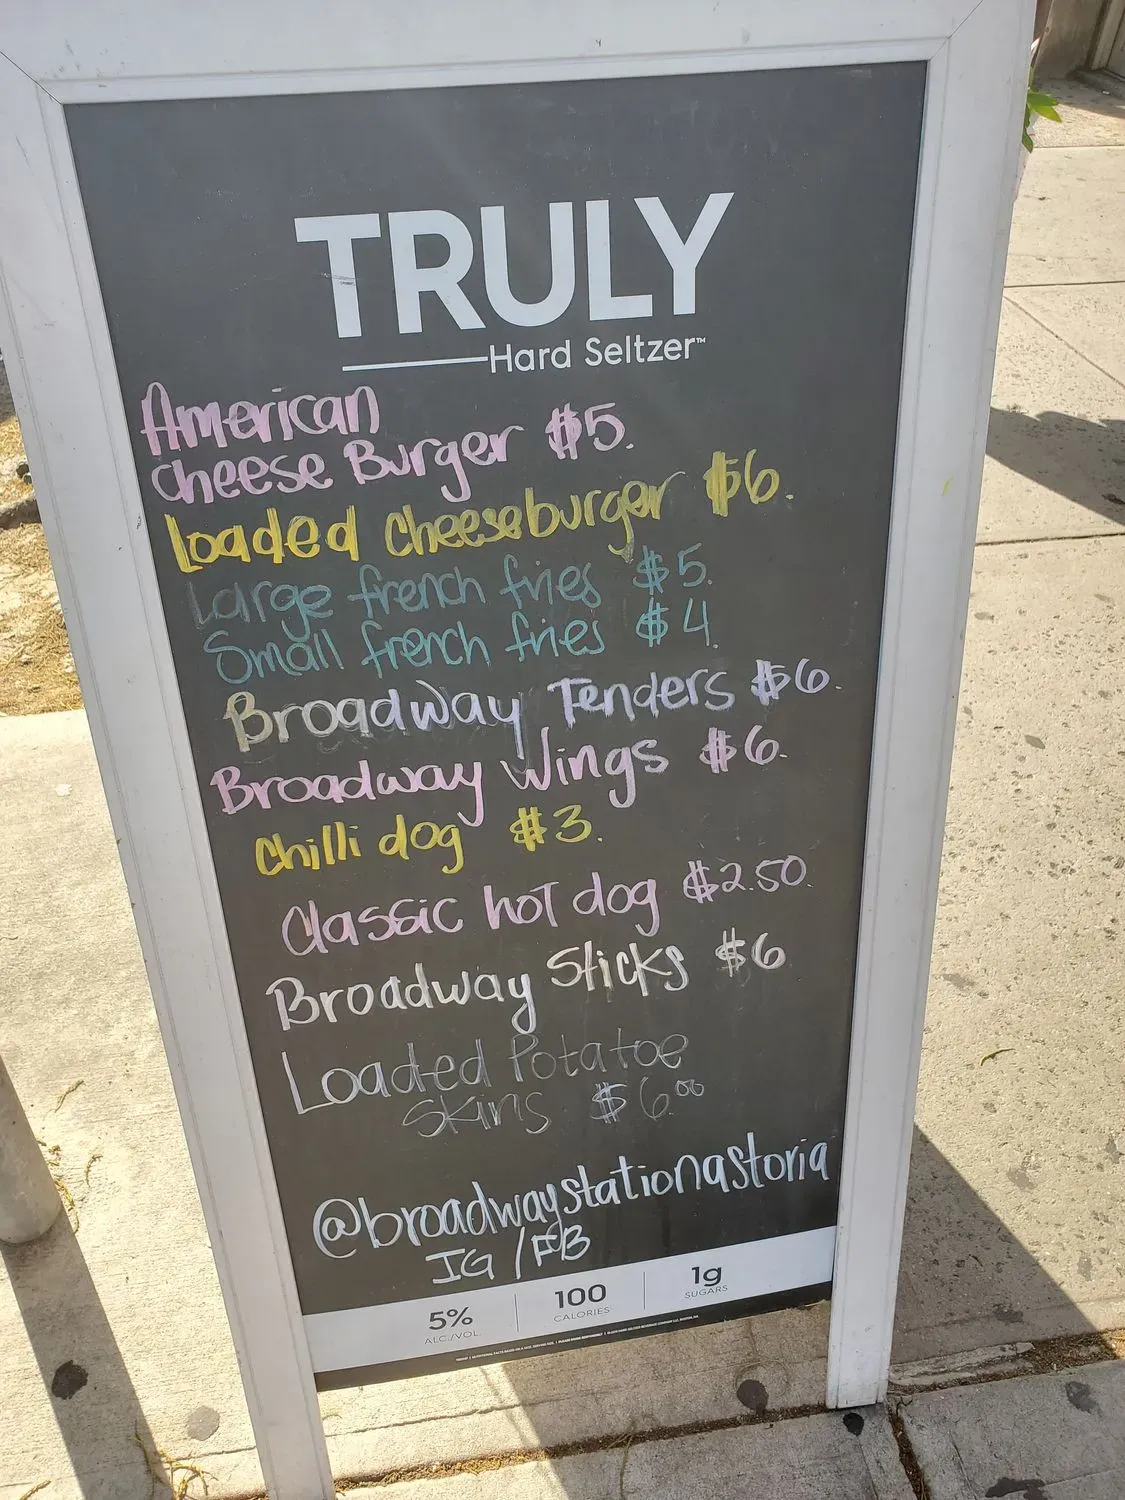 TRULY
Hard Seltzer™
American
cheese Burger $5.
Loaded cheeseburger $6.
Large french fries $5.
Small french fries $4.
Broadway Tenders $6.
Broadway Wings $6.
Chilli dog $3.
Classic hot dog $2.50.
Broadway Sticks $6
Loaded Potatoe
Skins $6.00
@broadwaystationastoria
IG / FB
5% 100 1g
ALC./VOL. CALORIES SUGARS